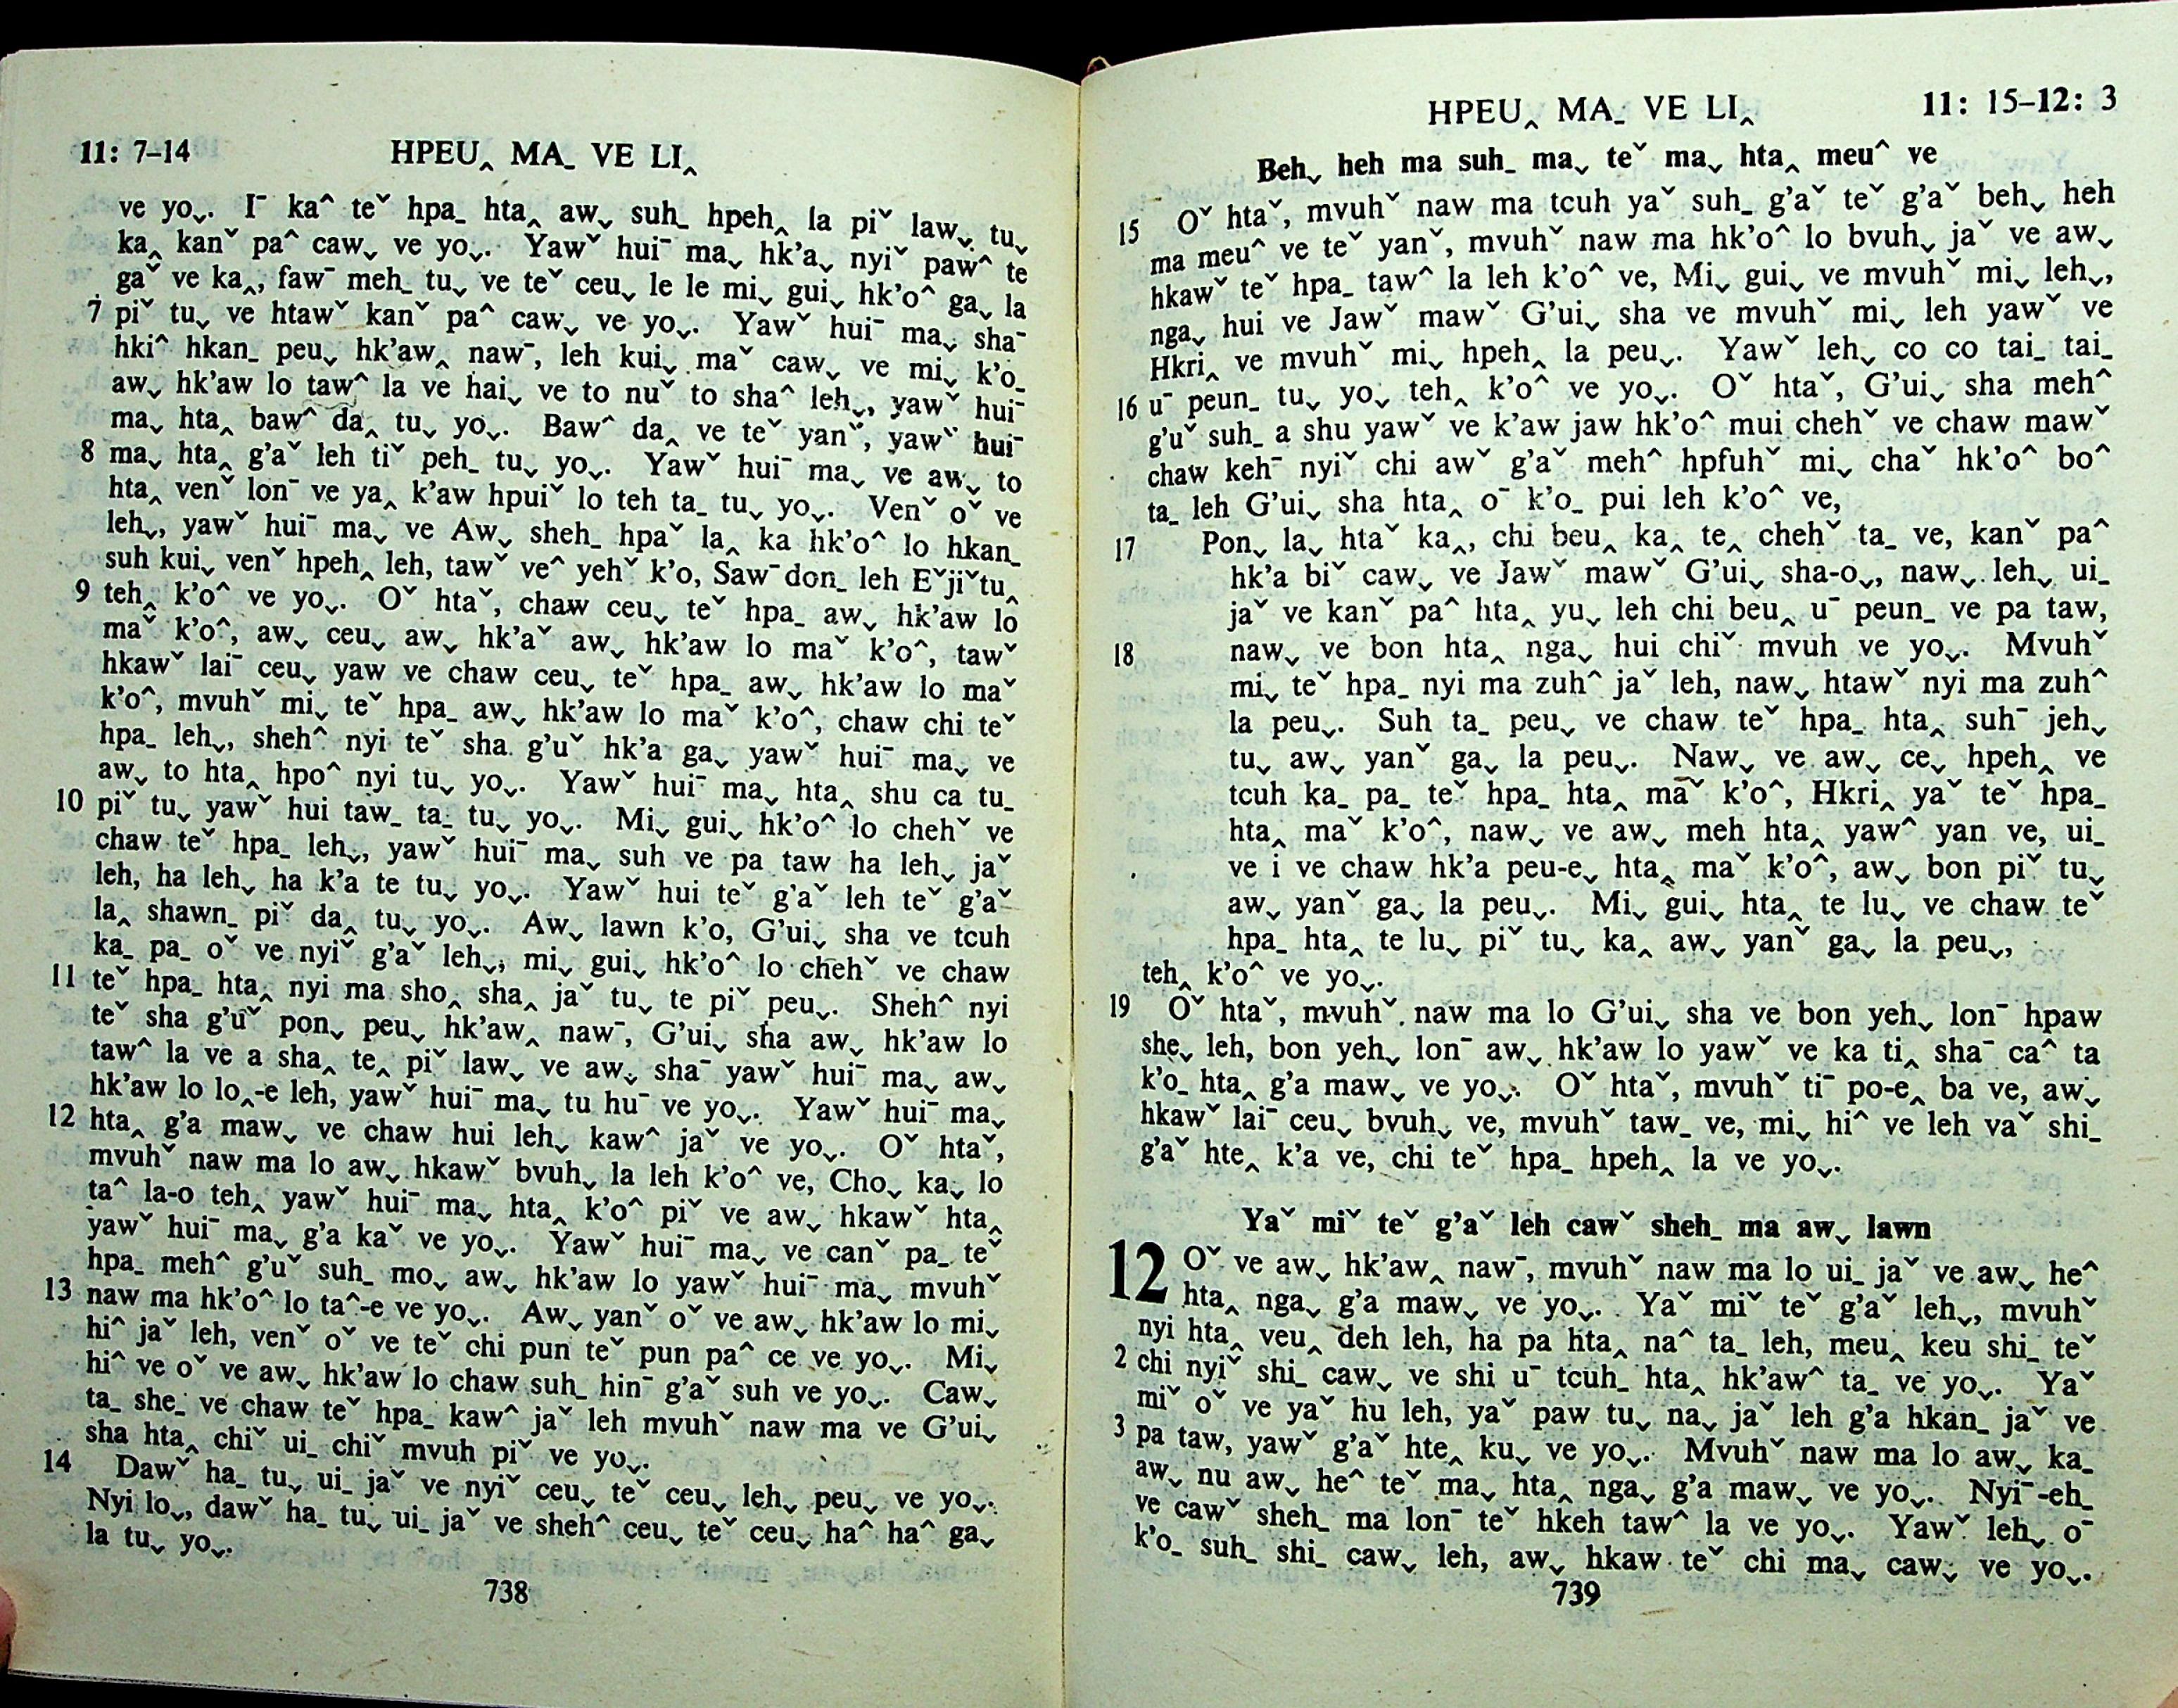 11: 7–14 HPEU‸ MA_ VE LI‸
ve yo⌄. I¯ kaˆ teˇ hpa_ hta‸ aw⌄ suh_ hpeh‸ la piˇ law⌄ tu⌄
ka‸ kanˇ paˆ caw⌄ ve yo⌄. Yawˇ hui¯ ma⌄ hk'a⌄ nyiˇ pawˆ te
gaˇ ve ka‸, faw¯ meh_ tu⌄ ve teˇ ceu⌄ le le mi⌄ gui⌄ hk'oˆ ga⌄ la
7 piˇ tu⌄ ve htawˇ kanˇ paˆ caw⌄ ve yo⌄. Yawˇ hui¯ ma⌄ sha¯
hkiˆ hkan_ peu⌄ hk'aw‸ naw¯, leh kui⌄ maˇ caw⌄ ve mi⌄ k'o_
aw⌄ hk'aw lo tawˆ la ve hai⌄ ve to nuˇ to shaˆ leh⌄, yawˇ hui¯
ma⌄ hta‸ bawˆ da‸ tu⌄ yo⌄. Bawˆ da‸ ve teˇ yanˇ, yawˇ hui¯
8 ma⌄ hta‸ g'aˇ leh tiˇ peh_ tu⌄ yo⌄. Yawˇ hui¯ ma⌄ ve aw⌄ to
hta‸ venˇ lon¯ ve ya‸ k'aw hpuiˇ lo teh ta_ tu⌄ yo⌄. Venˇ oˇ ve
leh⌄, yawˇ hui¯ ma⌄ ve Aw⌄ sheh_ hpaˇ la‸ ka hk'oˆ lo hkan_
suh kui⌄ venˇ hpeh‸ leh, tawˇ veˆ yehˇ k'o, Saw¯don_ leh Eˇjiˇtu‸
9 teh‸ k'oˆ ve yo⌄. Oˇ htaˇ, chaw ceu⌄ teˇ hpa_ aw⌄ hk'aw lo
maˇ k'oˆ, aw⌄ ceu⌄ aw⌄ hk'aˇ aw⌄ hk'aw lo maˇ k'oˆ, tawˇ
hkawˇ lai¯ ceu⌄ yaw ve chaw ceu⌄ teˇ hpa_ aw⌄ hk'aw lo maˇ
k'oˆ, mvuhˇ mi⌄ teˇ hpa_ aw⌄ hk'aw lo maˇ k'oˆ, chaw chi teˇ
hpa_ leh⌄, shehˆ nyi teˇ sha g'uˇ hk'a ga⌄ yawˇ hui¯ ma⌄ ve
aw⌄ to hta‸ hpoˆ nyi tu⌄ yo⌄. Yawˇ hui¯ ma⌄ hta‸ shu ca tu_
10 piˇ tu⌄ yawˇ hui taw_ ta_ tu⌄ yo⌄. Mi⌄ gui⌄ hk'oˆ lo chehˇ ve
chaw teˇ hpa_ leh⌄, yawˇ hui¯ ma⌄ suh ve pa taw ha leh⌄ jaˇ
leh, ha leh⌄ ha k'a te tu⌄ yo⌄. Yawˇ hui teˇ g'aˇ leh teˇ g'aˇ
la‸ shawn_ piˇ da‸ tu⌄ yo⌄. Aw⌄ lawn k'o, G'ui⌄ sha ve tcuh
ka_ pa_ oˇ ve nyiˇ g'aˇ leh⌄, mi⌄ gui⌄ hk'oˆ lo chehˇ ve chaw
11 teˇ hpa_ hta‸ nyi ma sho‸ sha‸ jaˇ tu⌄ te piˇ peu⌄. Shehˆ nyi
teˇ sha g'uˇ pon⌄ peu⌄ hk'aw‸ naw¯, G'ui⌄ sha aw⌄ hk'aw lo
tawˆ la ve a sha‸ te‸ piˇ law⌄ ve aw⌄ sha¯ yawˇ hui¯ ma⌄ aw⌄
hk'aw lo lo‸-e leh, yawˇ hui¯ ma⌄ tu hu¯ ve yo⌄. Yawˇ hui¯ ma⌄
12 hta‸ g'a maw⌄ ve chaw hui leh⌄ kawˆ jaˇ ve yo⌄. Oˇ htaˇ,
mvuhˇ naw ma lo aw⌄ hkawˇ bvuh⌄ la leh k'oˆ ve, Cho⌄ ka⌄ lo
taˆ la-o teh‸ yawˇ hui¯ ma⌄ hta‸ k'oˆ piˇ ve aw⌄ hkawˇ hta‸
yawˇ hui¯ ma⌄ g'a kaˇ ve yo⌄. Yawˇ hui¯ ma⌄ ve canˇ pa_ teˇ
hpa_ mehˆ g'uˇ suh_ mo⌄ aw⌄ hk'aw lo yawˇ hui¯ ma⌄ mvuhˇ
13 naw ma hk'oˆ lo taˆ-e ve yo⌄. Aw⌄ yanˇ oˇ ve aw⌄ hk'aw lo mi⌄
hiˆ jaˇ leh, venˇ oˇ ve teˇ chi pun teˇ pun paˆ ce ve yo⌄. Mi⌄
hiˆ ve oˇ ve aw⌄ hk'aw lo chaw suh_ hin¯ g'aˇ suh ve yo⌄. Caw⌄
ta_ she⌄ ve chaw teˇ hpa_ kawˆ jaˇ leh mvuhˇ naw ma ve G'ui⌄
sha hta‸ chiˇ ui_ chiˇ mvuh piˇ ve yo⌄.
14 Dawˇ ha_ tu⌄ ui_ jaˇ ve nyiˇ ceu⌄ teˇ ceu⌄ leh⌄ peu⌄ ve yo⌄.
Nyi lo⌄, dawˇ ha_ tu⌄ ui_ jaˇ ve shehˆ ceu⌄ teˇ ceu⌄ haˆ haˆ ga⌄
la tu⌄ yo⌄.
738
HPEU‸ MA_ VE LI‸ 11: 15–12: 3
Beh⌄ heh ma suh_ ma⌄ teˇ ma⌄ hta‸ meuˆ ve
15 Oˇ htaˇ, mvuhˇ naw ma tcuh yaˇ suh_ g'aˇ teˇ g'aˇ beh⌄ heh
ma meuˆ ve teˇ yanˇ, mvuhˇ naw ma hk'oˆ lo bvuh⌄ jaˇ ve aw⌄
hkawˇ teˇ hpa_ tawˆ la leh k'oˆ ve, Mi⌄ gui⌄ ve mvuhˇ mi⌄ leh⌄,
nga⌄ hui ve Jawˇ mawˇ G'ui⌄ sha ve mvuhˇ mi⌄ leh yawˇ ve
Hkri‸ ve mvuhˇ mi⌄ hpeh‸ la peu⌄. Yawˇ leh⌄ co co tai_ tai_
16 u¯ peun_ tu⌄ yo⌄ teh‸ k'oˆ ve yo⌄. Oˇ htaˇ, G'ui⌄ sha mehˆ
g'uˇ suh_ a shu yawˇ ve k'aw jaw hk'oˆ mui chehˇ ve chaw mawˇ
chaw keh¯ nyiˇ chi awˇ g'aˇ mehˆ hpfuhˇ mi⌄ chaˇ hk'oˆ boˆ
ta_ leh G'ui⌄ sha hta‸ o¯ k'o_ pui leh k'oˆ ve,
17 Pon⌄ la⌄ htaˇ ka‸, chi beu‸ ka‸ te‸ chehˇ ta_ ve, kanˇ paˆ
hk'a biˇ caw⌄ ve Jawˇ mawˇ G'ui⌄ sha-o⌄, naw⌄ leh⌄ ui_
jaˇ ve kanˇ paˆ hta‸ yu⌄ leh chi beu‸ u¯ peun_ ve pa taw,
18 naw⌄ ve bon hta‸ nga⌄ hui chiˇ mvuh ve yo⌄. Mvuhˇ
mi⌄ teˇ hpa_ nyi ma zuhˆ jaˇ leh, naw⌄ htawˇ nyi ma zuhˆ
la peu⌄. Suh ta_ peu⌄ ve chaw teˇ hpa_ hta‸ suh¯ jeh⌄
tu⌄ aw⌄ yanˇ ga⌄ la peu⌄. Naw⌄ ve aw⌄ ce⌄ hpeh‸ ve
tcuh ka_ pa_ teˇ hpa_ hta‸ maˇ k'oˆ, Hkri‸ yaˇ teˇ hpa_
hta‸ maˇ k'oˆ, naw⌄ ve aw⌄ meh hta‸ yawˆ yan ve, ui_
ve i ve chaw hk'a peu-e⌄ hta‸ maˇ k'oˆ, aw⌄ bon piˇ tu⌄
aw⌄ yanˇ ga⌄ la peu⌄. Mi⌄ gui⌄ hta‸ te lu⌄ ve chaw teˇ
hpa_ hta‸ te lu⌄ piˇ tu⌄ ka‸ aw⌄ yanˇ ga⌄ la peu⌄,
teh‸ k'oˆ ve yo⌄.
19 Oˇ htaˇ, mvuhˇ naw ma lo G'ui⌄ sha ve bon yeh⌄ lon¯ hpaw
she⌄ leh, bon yeh⌄ lon¯ aw⌄ hk'aw lo yawˇ ve ka ti‸ sha¯ caˆ ta
k'o_ hta‸ g'a maw⌄ ve yo⌄. Oˇ htaˇ, mvuhˇ ti¯ po-e‸ ba ve, aw⌄
hkawˇ lai¯ ceu⌄ bvuh⌄ ve, mvuhˇ taw_ ve, mi⌄ hiˆ ve leh vaˇ shi_
g'aˇ hte‸ k'a ve, chi teˇ hpa_ hpeh‸ la ve yo⌄.
Yaˇ miˇ teˇ g'aˇ leh cawˇ sheh_ ma aw⌄ lawn
12 Oˇ ve aw⌄ hk'aw‸ naw¯, mvuhˇ naw ma lo ui_ jaˇ ve aw⌄ heˆ
hta‸ nga⌄ g'a maw⌄ ve yo⌄. Yaˇ miˇ teˇ g'aˇ leh⌄, mvuhˇ
nyi hta‸ veu‸ deh leh, ha pa hta‸ naˆ ta_ leh, meu‸ keu shi_ teˇ
2 chi nyiˇ shi_ caw⌄ ve shi u¯ tcuh_ hta‸ hk'awˆ ta_ ve yo⌄. Yaˇ
miˇ oˇ ve yaˇ hu leh, yaˇ paw tu⌄ na⌄ jaˇ leh g'a hkan_ jaˇ ve
3 pa taw, yawˇ g'aˇ hte‸ ku⌄ ve yo⌄. Mvuhˇ naw ma lo aw⌄ ka_
aw⌄ nu aw⌄ heˆ teˇ ma⌄ hta‸ nga⌄ g'a maw⌄ ve yo⌄. Nyi¯-eh_
ve cawˇ sheh_ ma lon¯ teˇ hkeh tawˆ la ve yo⌄. Yawˇ leh⌄ o¯
k'o_ suh_ shi_ caw⌄ leh, aw⌄ hkaw teˇ chi ma⌄ caw⌄ ve yo⌄.
739